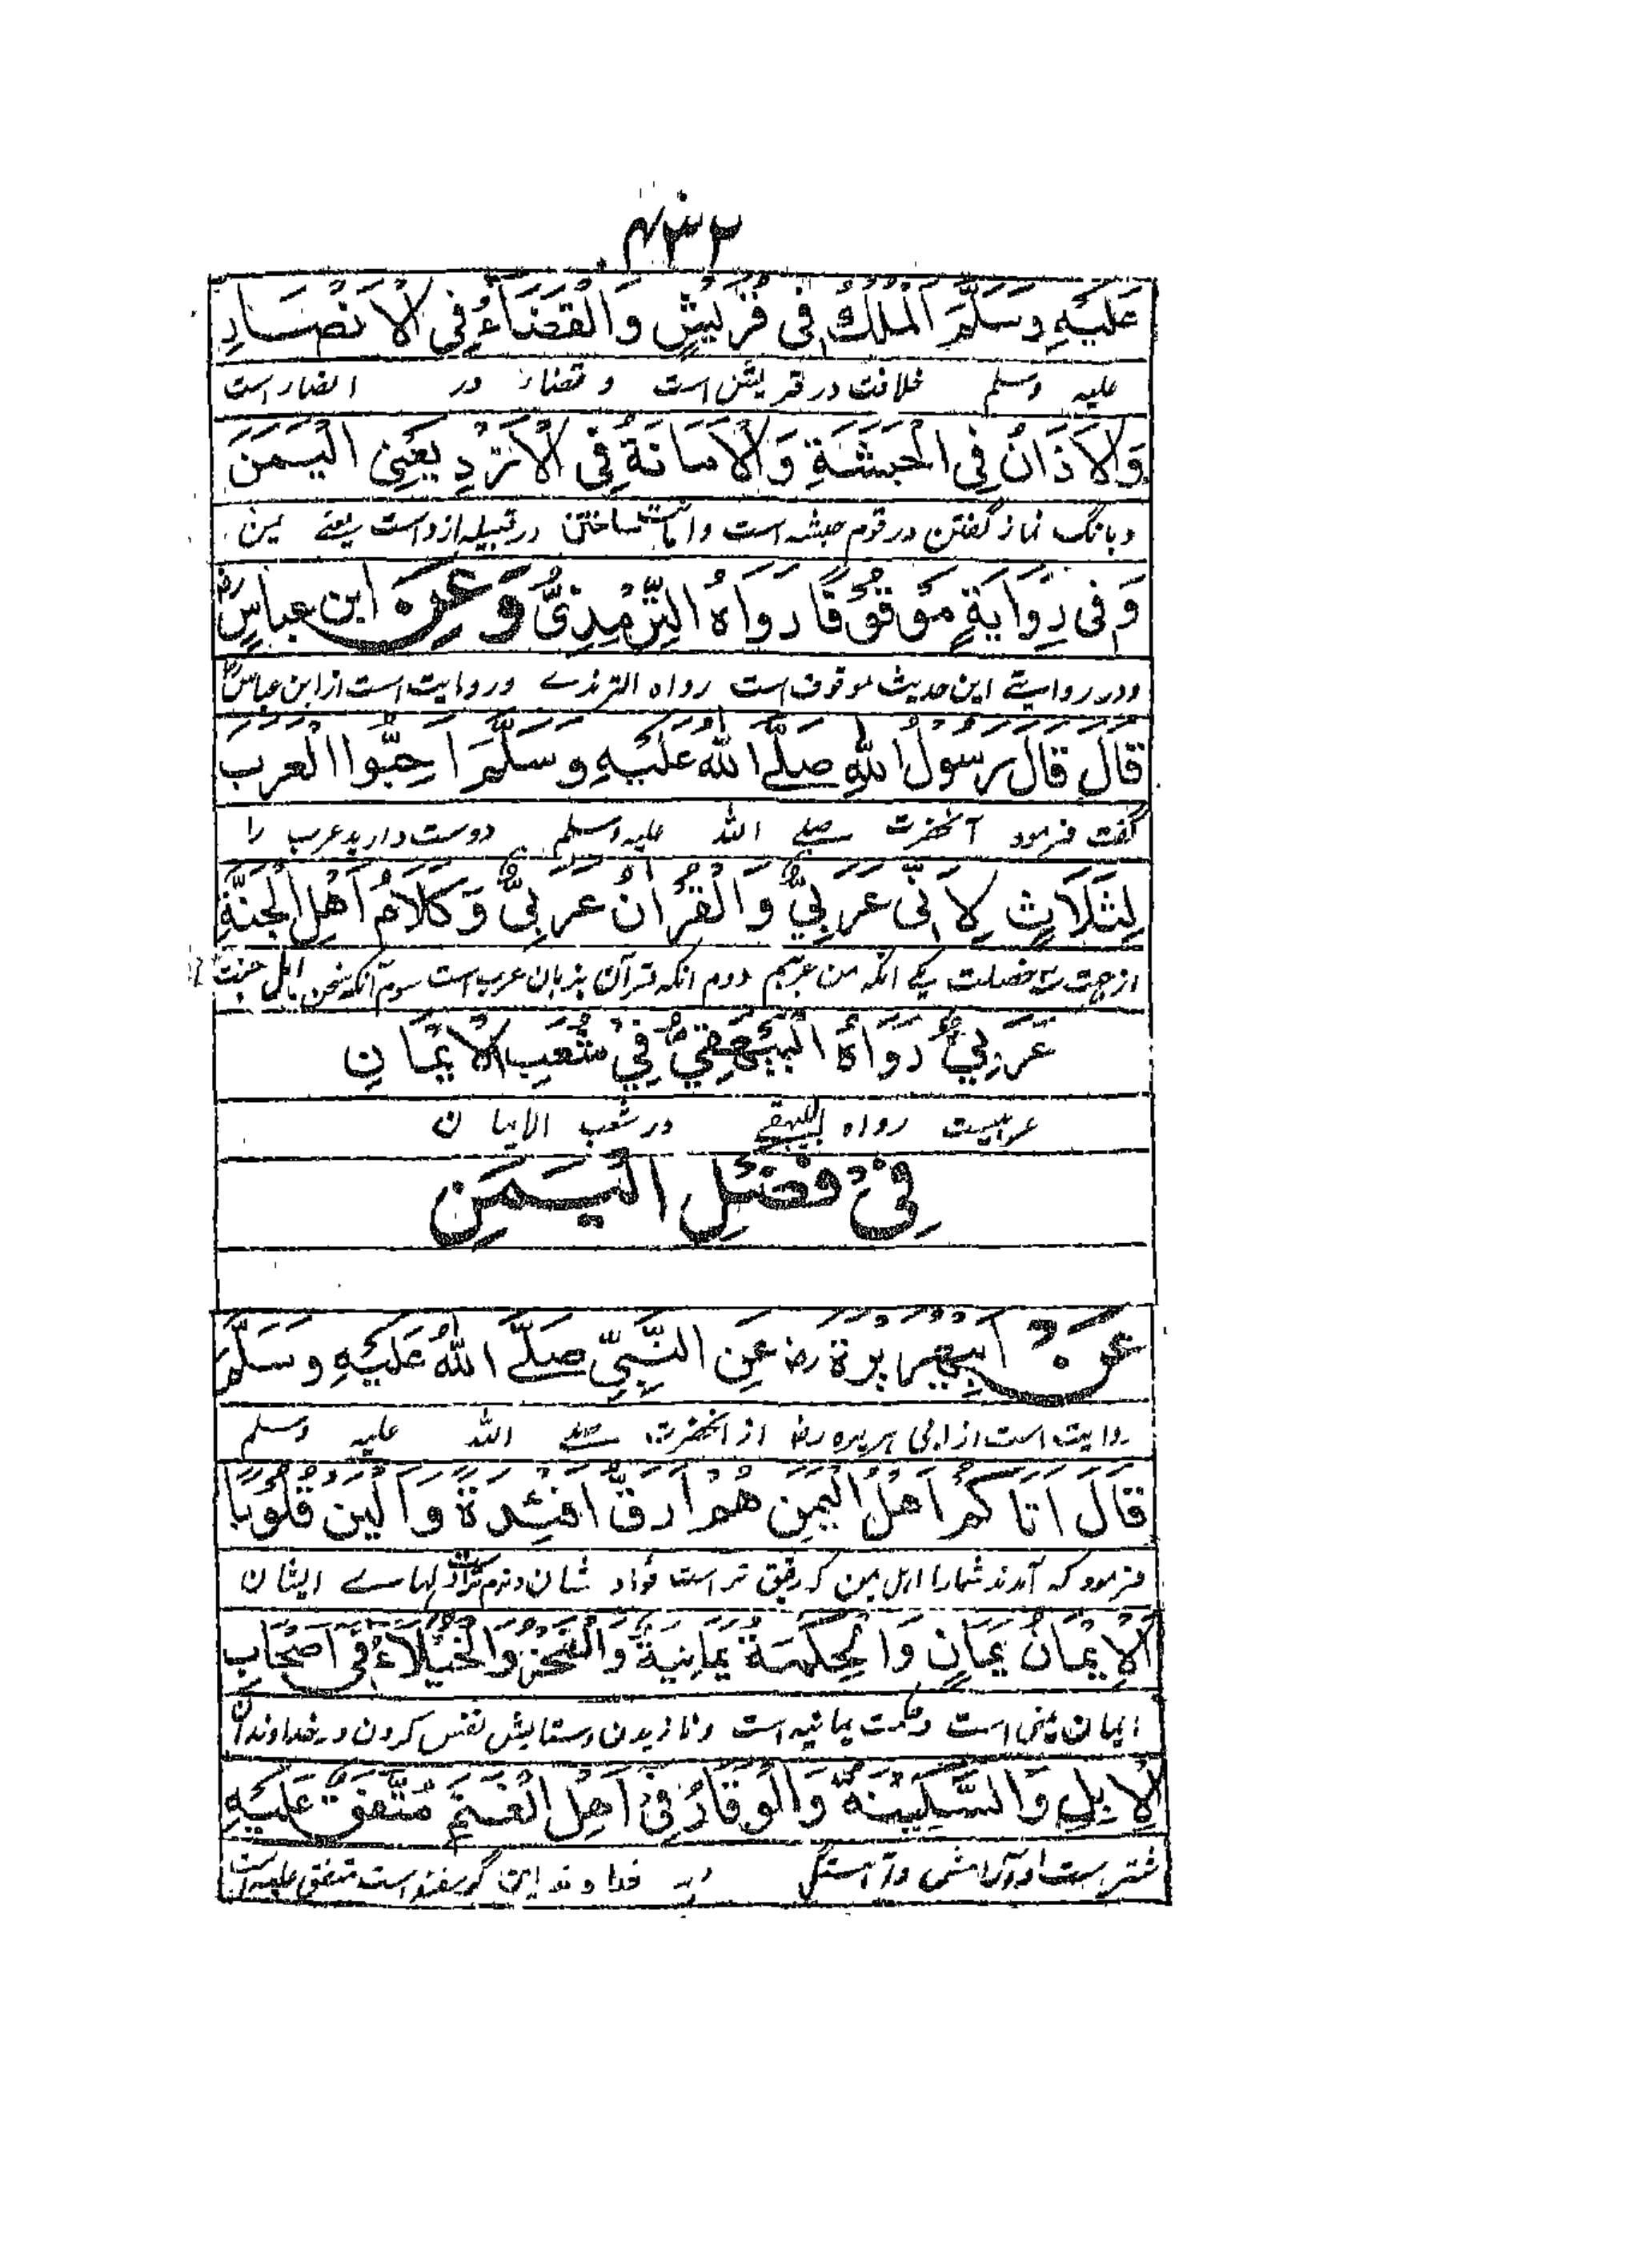 ۴۳۲
عَلَيْهِ وَسَلَّمَ الْمُلْكُ فِي قُرَيْشٍ وَالْقَضَاءُ فِي الْاَنْصَارِ
علیہ وسلم خلافت در قریش است و قضاء در انصار است
وَالْاَذَانُ فِي الْحَبَشَةِ وَالْاَمَانَةُ فِي الْاَزْدِ يَعْنِي الْيَمَنَ
و بانگ نماز گفتن در قوم حبشه است و امانت ساختن در قبیله ازد است یعنے یمن
وَفِي رِوَايَةٍ مَوْقُوْفًا رَوَاهُ التِّرْمِذِيُّ وَعَنِ ابن عباسٍ رض
و در روایتے این حدیث موقوف است رواه الترمذے و روایت است از ابن عباس رض
قَالَ قَالَ رَسُوْلُ اللهِ صَلَّے اللهُ عَلَيْهِ وَسَلَّمَ اَحِبُّوا الْعَرَبَ
گفت فرمود آنحضرت صلے الله علیه وسلم دوست دارید عرب را
لِثَلَاثٍ لِاَنِّي عَرَبِيٌّ وَالْقُرْاٰنُ عَرَبِيٌّ وَكَلَامُ اَهْلِ الْجَنَّةِ
از جهت سه خصلت یکے آنکه من عربیم دوم آنکه قرآن بزبان عرب است سوم آنکه سخن اهل جنت
عَرَبِيٌّ رَوَاهُ الْبَيْهَقِيُّ فِيْ شُعَبِ الْاِيْمَانِ
عربیست رواه البیهقے در شعب الایمان
فِيْ فَضْلِ الْيَمَنِ
عَنْ اَبِيْ هُرَيْرَةَ رض عَنِ النَّبِيِّ صَلَّے اللهُ عَلَيْهِ وَسَلَّمَ
روایت است از ابی هریره رض از آنحضرت صلے الله علیه وسلم
قَالَ اَتَاكُمْ اَهْلُ الْيَمَنِ هُمْ اَرَقُّ اَفْئِدَةً وَاَلْيَنُ قُلُوْبًا
فرمود که آمدند شمارا اهل یمن که رقیق تر است فؤاد شان و نرم تر است دلهاے ایشان
اَلْاِيْمَانُ يَمَانٍ وَالْحِكْمَةُ يَمَانِيَةٌ وَالْفَخْرُ وَالْخُيَلَاءُ فِيْ اَصْحَابِ
ایمان یمنی است و حکمت یمانیه است و نازیدن و ستایش نفس کردن در خداوندان
الْاِبِلِ وَالسَّكِيْنَةُ وَالْوَقَارُ فِيْ اَهْلِ الْغَنَمِ مُتَّفَقٌ عَلَيْهِ
شتر است و آرامش و آهستگی در خداوندان گوسفند است متفق علیه است